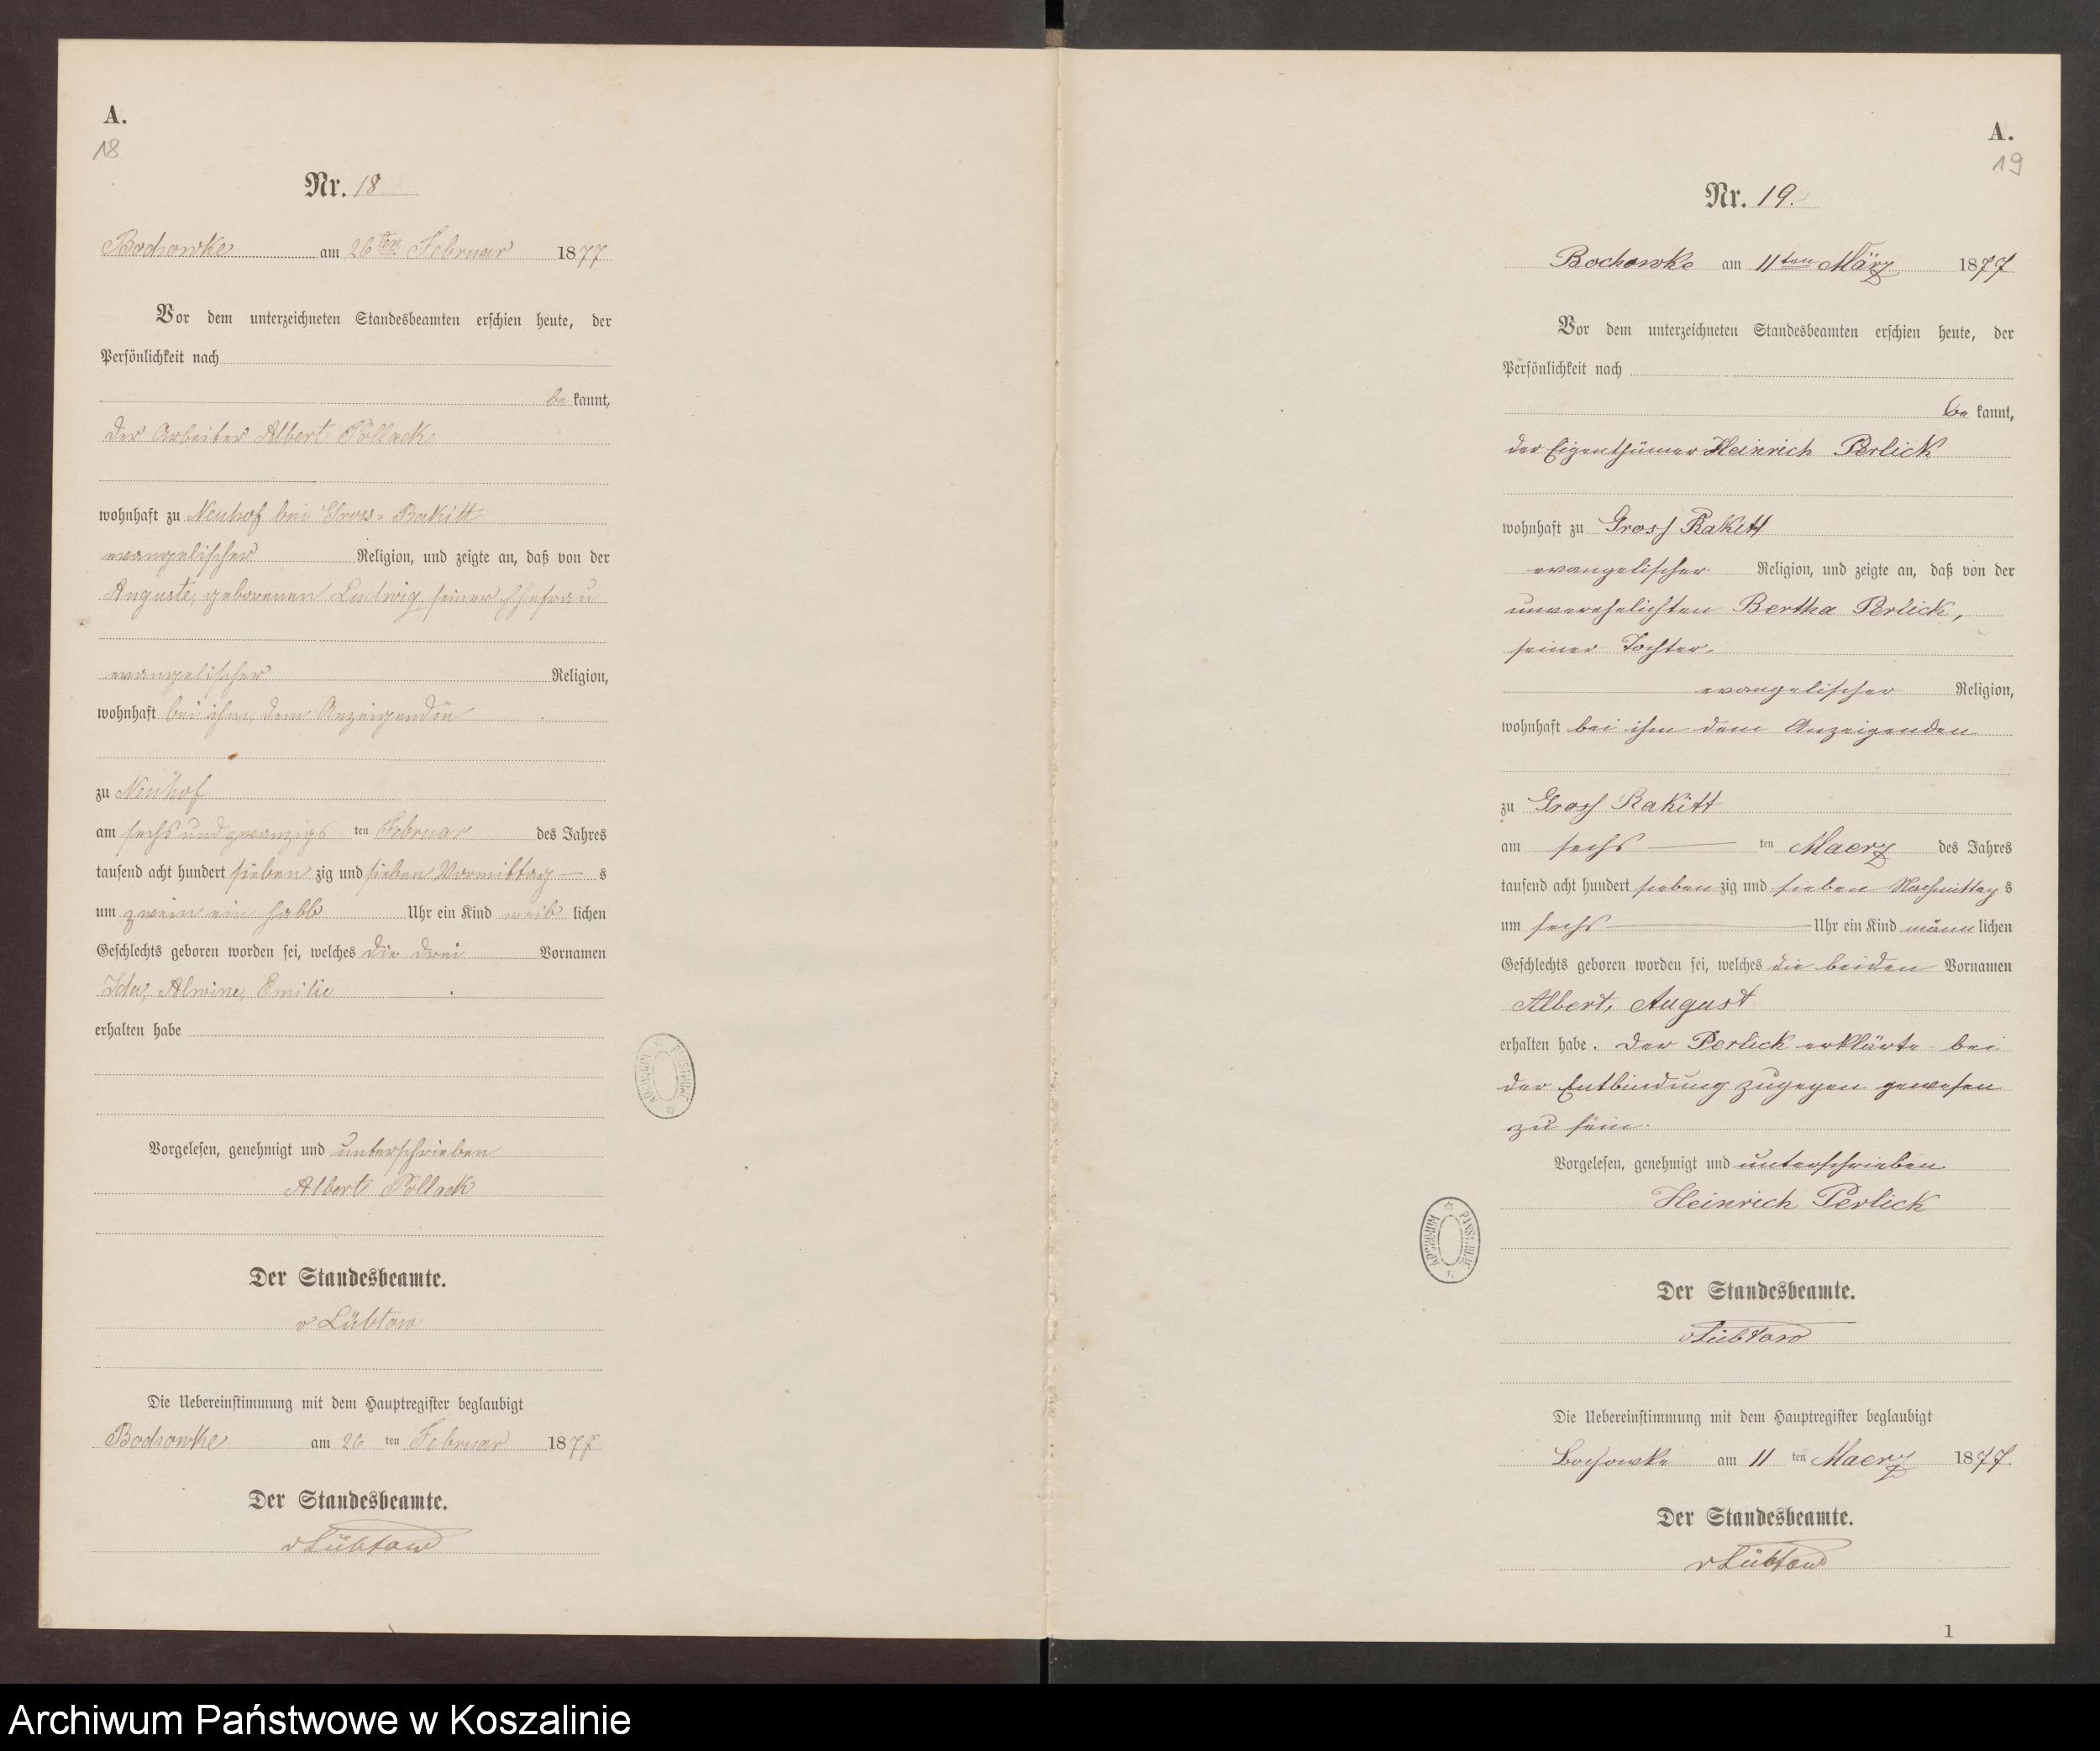 A.
18
Nr. 18
Bochowke am 26ten Februar 1877
Vor dem unterzeichneten Standesbeamten erschien heute, der
Persönlichkeit nach
be kannt,
der Arbeiter Albert Pollack
wohnhaft zu Neuhof bei Gross-Rakitt
evangelischer Religion, und zeigte an, daß von der
Auguste, geborenen Ludwig, seiner Ehefrau
evangelischer Religion,
wohnhaft bei ihm, dem Anzeigenden
zu Neuhof
am sechs und zwanzigs ten Februar des Jahres
tausend acht hundert sieben zig und sieben Vormittag s
um zwein ein halb Uhr ein Kind weib lichen
Geschlechts geboren worden sei, welches die drei Vornamen
Ida, Alwine, Emilie
erhalten habe
Vorgelesen, genehmigt und unterschrieben
Albert Pollack
Der Standesbeamte.
v Lübtow
Die Uebereinstimmung mit dem Hauptregister beglaubigt
Bochowke am 26 ten Februar 1877
Der Standesbeamte.
v Lübtow
ARCHIWUM PAŃSTWOWE
A.
19
Nr. 19.
Bochowke am 11ten März 1877
Vor dem unterzeichneten Standesbeamten erschien heute, der
Persönlichkeit nach
be kannt,
der Eigenthümer Heinrich Perlick
wohnhaft zu Gross Rakitt
evangelischer Religion, und zeigte an, daß von der
unverehelichten Bertha Perlick,
seiner Tochter,
evangelischer Religion,
wohnhaft bei ihm dem Anzeigenden
zu Gross Rakitt
am sechs ten Maerz des Jahres
tausend acht hundert sieben zig und sieben Nachmittag s
um sechs Uhr ein Kind männ lichen
Geschlechts geboren worden sei, welches die beiden Vornamen
Albert, August
erhalten habe. Der Perlick erklärte bei
der Entbindung zugegen gewesen
zu sein.
Vorgelesen, genehmigt und unterschrieben
Heinrich Perlick
Der Standesbeamte.
v Lübtow
Die Uebereinstimmung mit dem Hauptregister beglaubigt
Bochowke am 11 ten Maerz 1877
Der Standesbeamte.
v Lübtow
1
ARCHIWUM PAŃSTWOWE
Archiwum Państwowe w Koszalinie